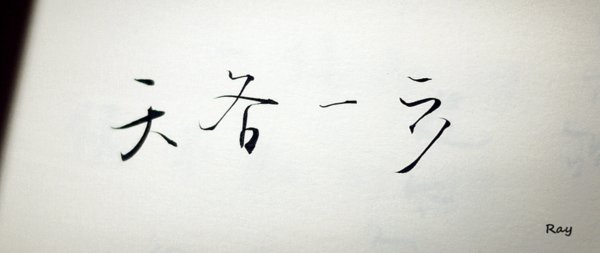 天各一方
Ray